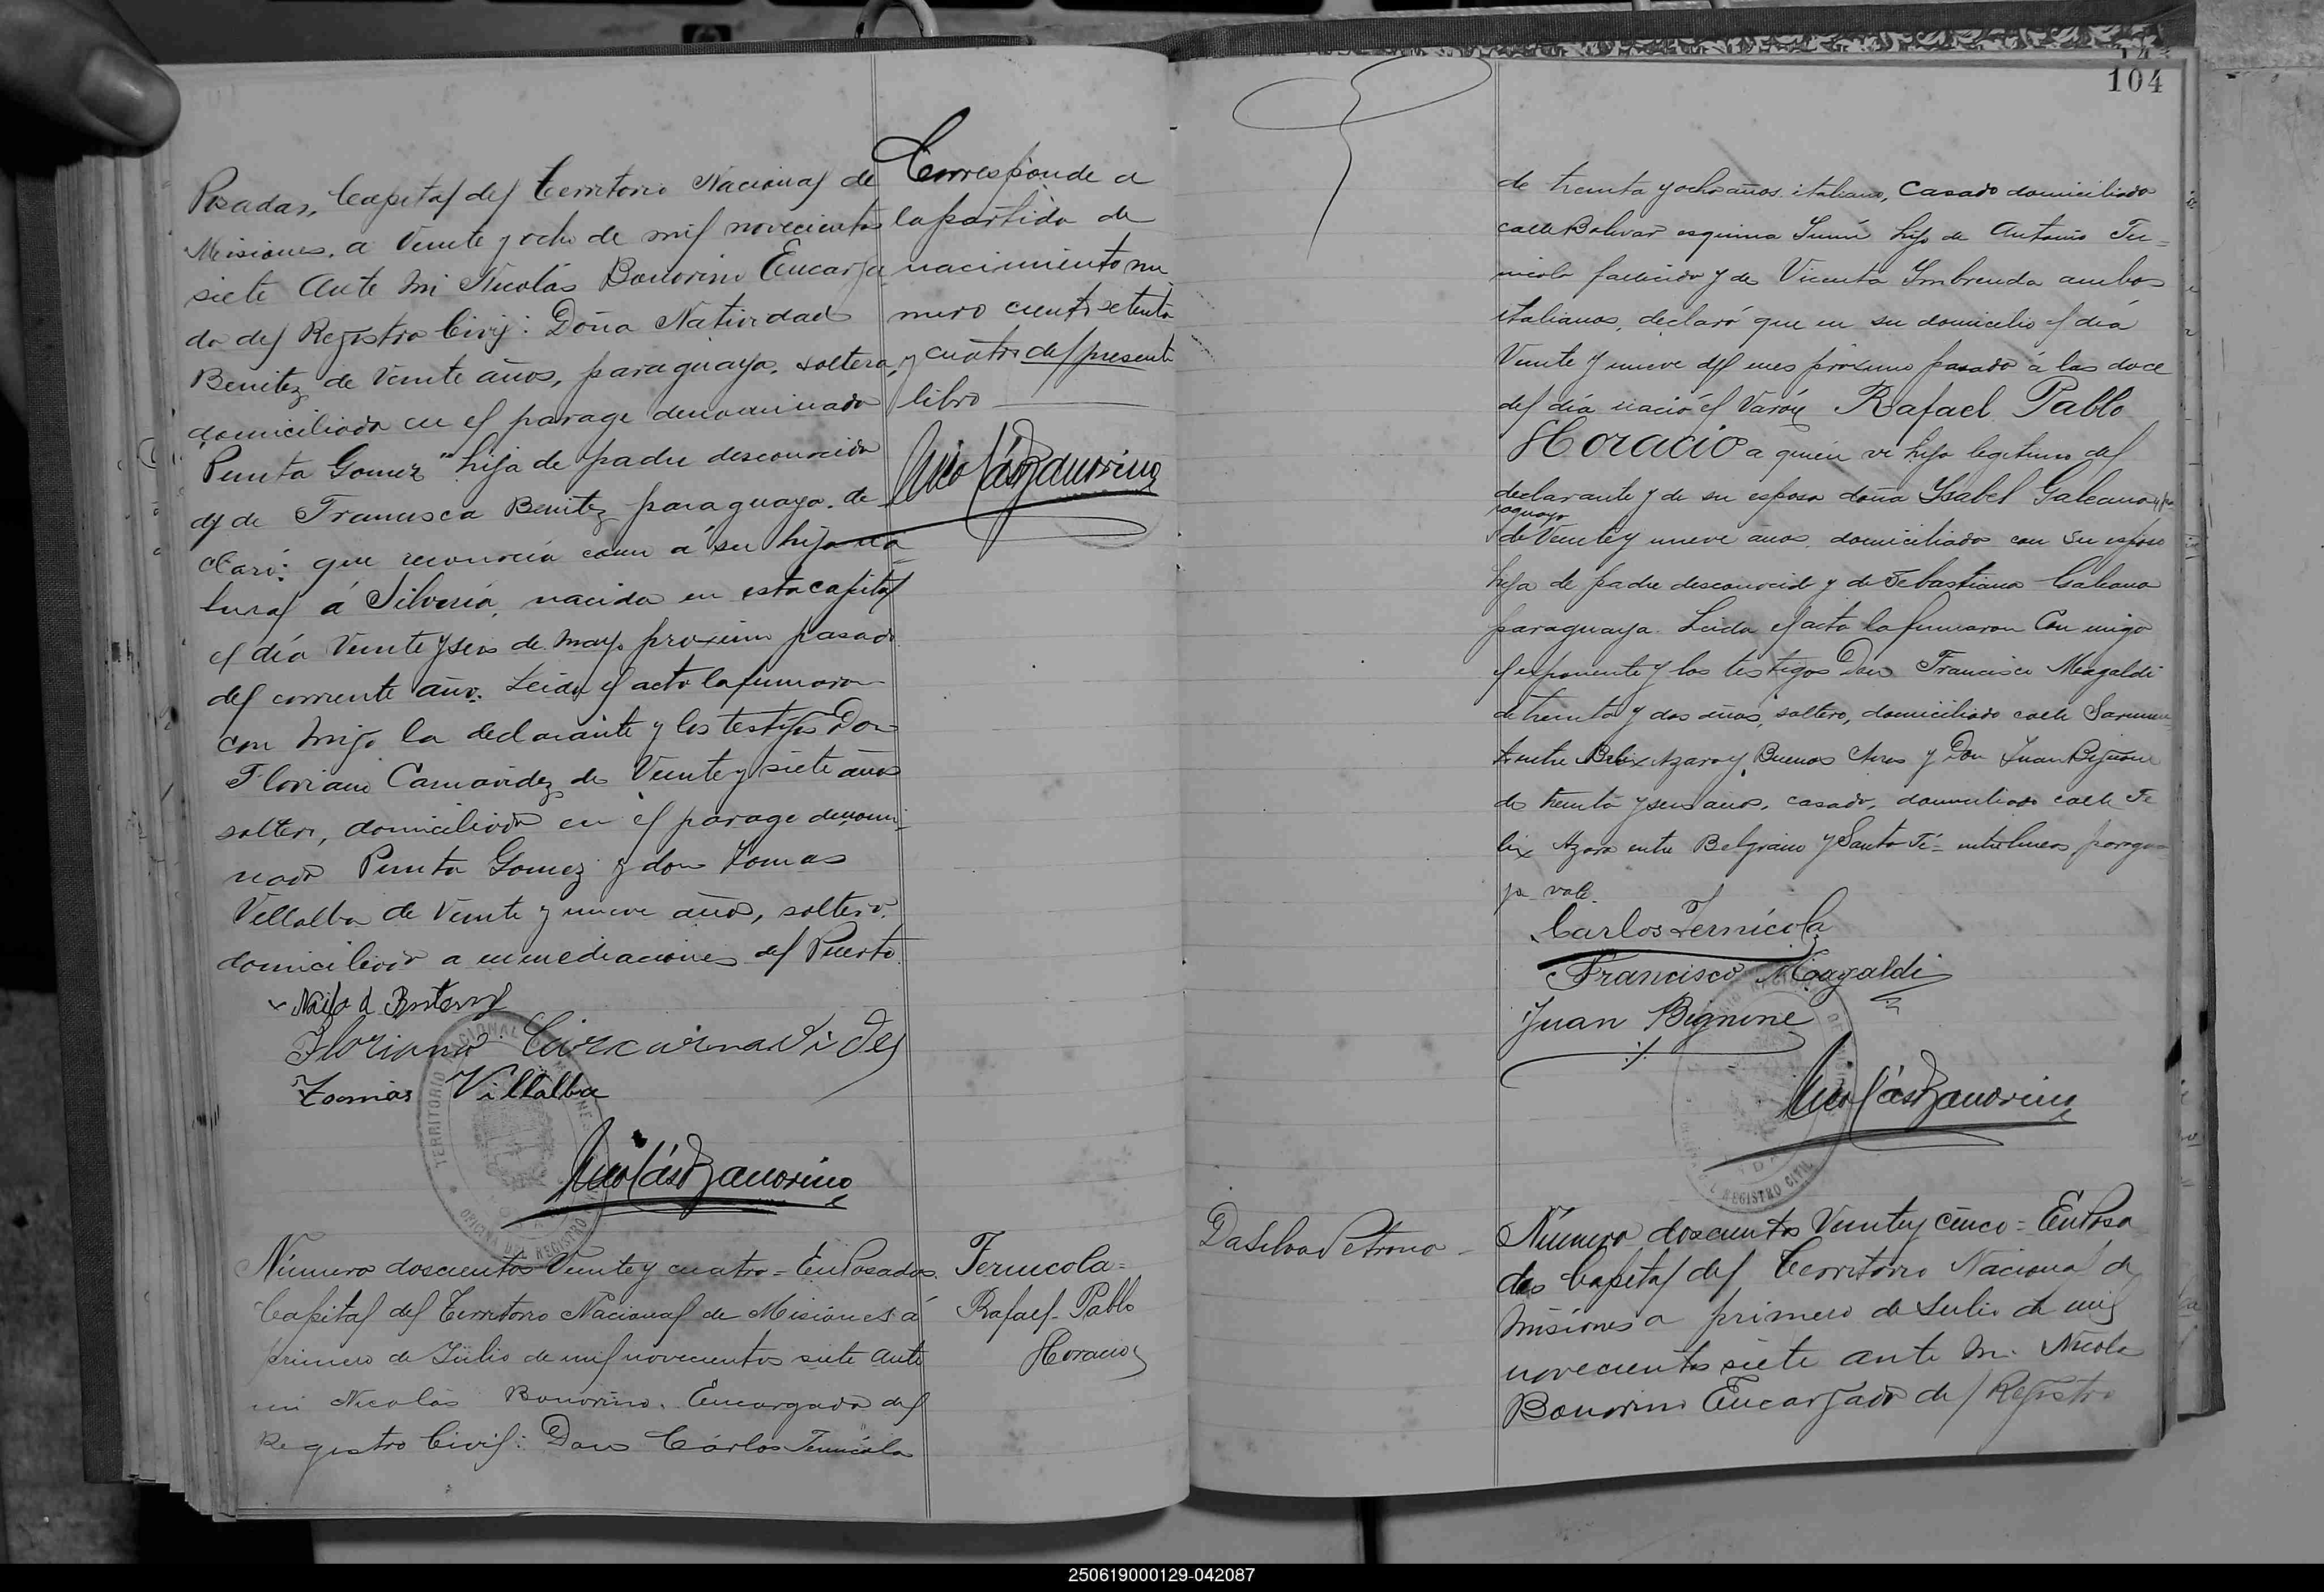 Posadas, Capital del Territorio Nacional de
Misiones, a Veinte y ocho de mil novecientos
siete Ante mi Nicolás Bonorino Encarga
do del Registro Civil: Doña Natividad
Benitez de Veinte años, paraguaya, soltera,
domiciliada en el parage denominado
"Punta Gomez" hija de padre desconocido
y de Francisca Benitez paraguaya. de
claró: que reconocía como á su hija na
tural á Silveria, nacida en esta capital
el día Veinte y seis de mayo proximo pasado
del corriente año. Leida el acta la firmaron
con migo la declarante y los testigos Don
Floriano Camavidez de Veinte y siete años
soltero, domiciliado en el parage denomi-
nado Punta Gomez y don Tomas
Villalba de Veinte y nueve años, soltero.
domiciliado a inmediaciones del Puerto.
Floriano
Tomas Villalba
Nicolás Bonorino
Corresponde a
la partida de
nacimiento nu
mero ciento setenta
y cuatro del presente
libro
Nicolás Bonorino
TERRITORIO NACIONAL
OFICINA DEL REGISTRO
Número doscientos Veinte y cuatro = En Posadas.
Capital del Territorio Nacional de Misiones á
primero de Julio de mil novecientos siete Ante
mi Nicolás Bonorino. Encargado del
Registro Civil: Don Cárlos Ternícola
Ternicola =
Rafael Pablo
Horacio
104
de treinta y ocho años. italiano, Casado domiciliado
calle Bolivar esquina Junin hijo de Antonio Ter=
nicola fallecido y de Vicenta Imbrenda ambos
italianos, declaró que en su domicilio el día
Veinte y nueve del mes próximo pasado á las doce
del día nació el Varón Rafael Pablo
Horacio a quién vi hijo legitimo del
declarante y de su esposa doña Ysabel Galeano, pa
raguaya
de Veinte y nueve años, domiciliada con su esposo
hija de padre desconocido y de Sebastiana Galeano
paraguaya. Leida el acta la firmaron Con migo
el exponente y los testigos Don Francisco Magaldi
de treinta y dos años, soltero, domiciliado calle Sarmien
to entre Felix Azara y Buenos Aires y Don Juan Bignone
de treinta y seis años, casado, domiciliado calle Fe
lix Azara entre Belgrano y Santa Fé = entrelineas paragua
ya vale.
Carlos Ternícola
Francisco Magaldi
Juan Bignone
Nicolás Bonorino
REGISTRO CIVIL
Da Silva Petrona
Número doscientos Veinte y cinco = En Posa
das Capital del Territorio Nacional de
Misiones a primero de Julio de mil
novecientos siete ante mi Nicolas
Bonorino Encargado del Registro
250619000129-042087